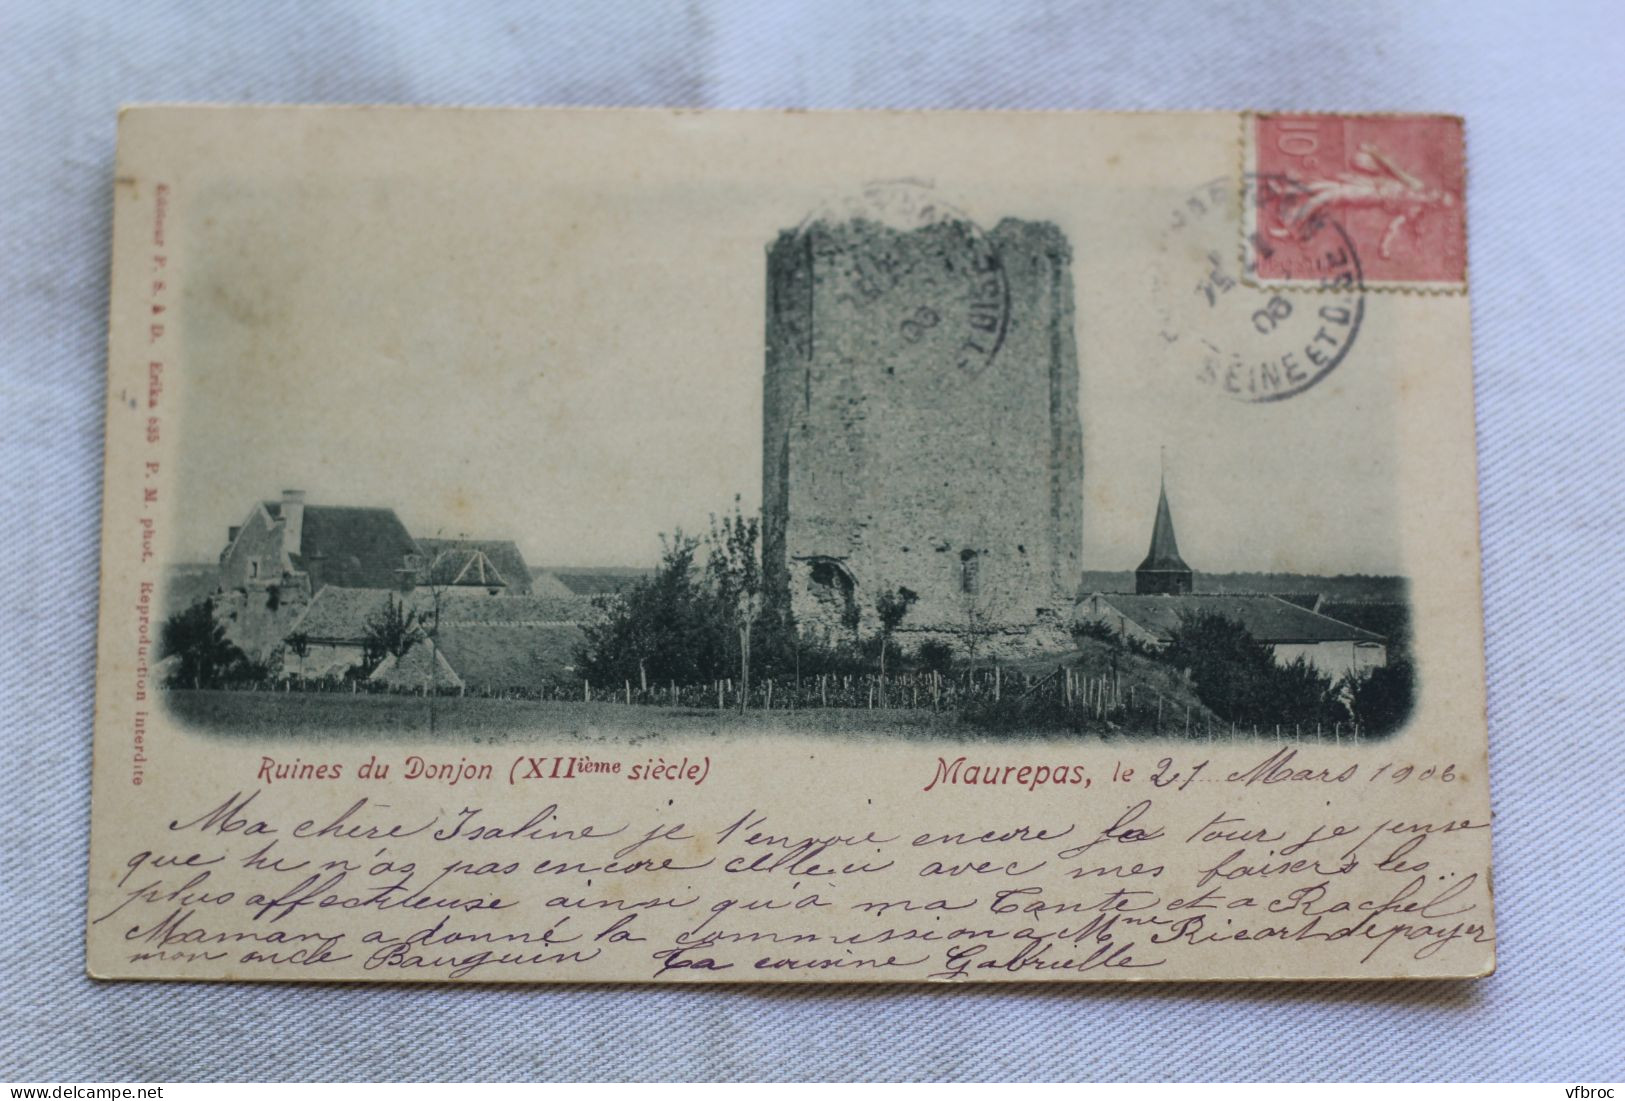 10c
SEINE ET OISE
06
ET OISE
06
Editeur P. S. à D. Erika 635 P. M. phot. Reproduction interdite
Ruines du Donjon (XIIième siècle)
Maurepas, le 21 Mars 1906
Ma chère Isaline je t'envoie encore la tour je pense
que tu n'as pas encore celle-ci avec mes baisers les
plus affectueuse ainsi qu'à ma Tante et a Rachel
Maman a donné la commission a Mme Ricart de payer
mon oncle Bauguin Ta cousine Gabrielle
www.delcampe.net
vfbroc